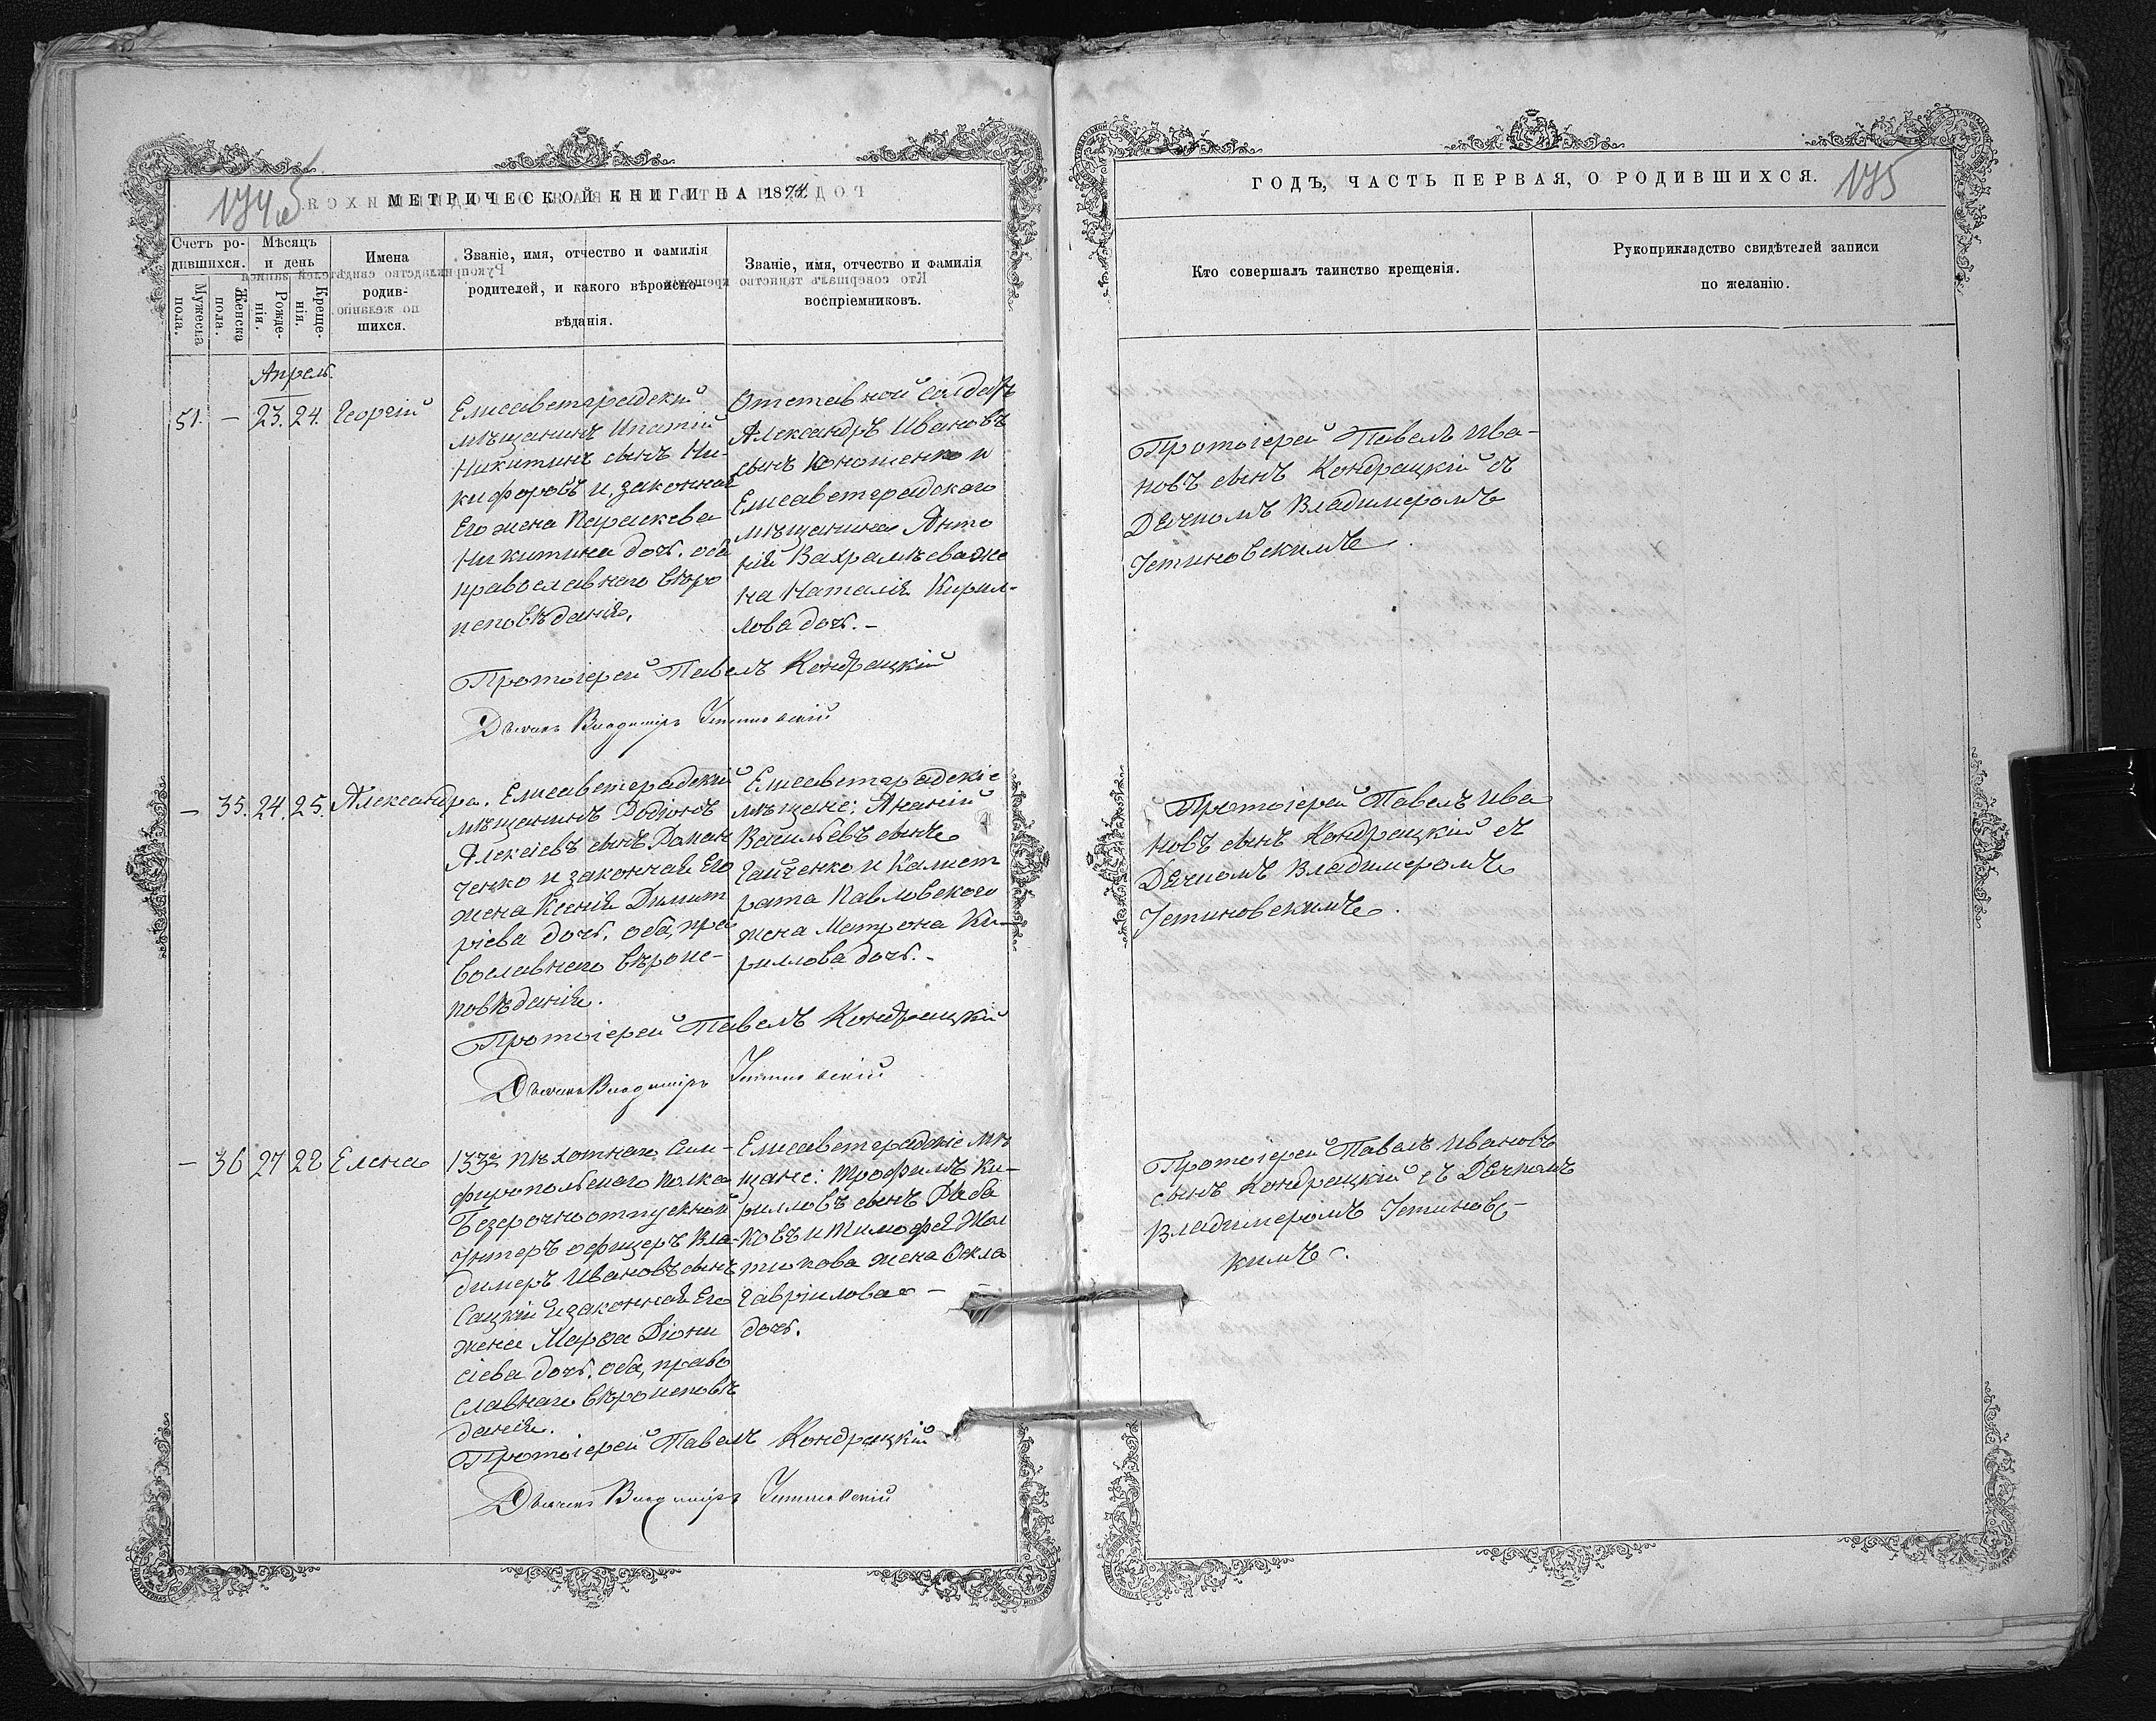 174об
МЕТРИЧЕСКОЙ КНИГИ НА 1874
Счетъ ро-
дившихся.
Мужеска
пола.
Женска
пола.
Мѣсяцъ
и день
Рожде-
нія.
Креще-
нія.
Имена
родив-
шихся.
Званіе, имя, отчество и фамилія
родителей, и какого вѣроиспо-
вѣданія.
Званіе, имя, отчество и фамилія
воспріемниковъ.
Апрель.
51. — 23. 24. Георгій
Елисаветградскій
мѣщанинъ Ипатій
Никитинъ сынъ Ни-
кифоровъ и законная
Его жена Параскева
Никитина дочь. оба
православнаго вѣро
исповѣданія.
Отставной Солдатъ
Александръ Ивановъ
сынъ Коношенко и
Елисаветградскаго
мѣщанина Анто
ній Вахрамѣева же
на Наталія Кирил-
лова дочь. —
Протоіерей Павелъ Кондрацкій
Дьячекъ Владимиръ Устиновскій
— 35. 24. 25. Александра.
Елисаветградскій
мѣщанинъ Родіонъ
Алексіевъ сынъ Роман
ченко и законная Его
жена Ксенія Димит
ріева дочь. оба, пра
вославнаго вѣроис-
повѣданія.
Елисаветградскіе
мѣщане: Ананій
Васильевъ сынъ
Гайченко и Калист
рата Павловскаго
жена Матрона Ки-
риллова дочь. -
Протоіерей Павелъ Кондрацкій
Дьячекъ Владимиръ Устиновскій
— 36 27 28 Елена
133го пѣхотнаго Сим-
феропольскаго полка
Безсрочноотпускной
Унтеръ офицеръ Вла-
димеръ Ивановъ сынъ
Сацкій и законная Его
жена Марфа Діони
сіева дочь. оба, право
славнаго вѣроисповѣ
данія.
Елисаветградскіе мѣ
щане: Трофимъ Ки-
рилловъ сынъ Ряба
ковъ и Тимофея Жол
тикова жена Ѳекла
Гавріилова —
дочь.
Протоіерей Павелъ Кондрацкій
Дьячекъ Владимиръ Устиновскій
175
ГОДЪ, ЧАСТЬ ПЕРВАЯ, О РОДИВШИХСЯ.
Кто совершалъ таинство крещенія.
Рукоприкладство свидѣтелей записи
по желанію.
Протоіерей Павелъ Ива-
новъ сынъ Кондрацкій съ
Дячкомъ Владимеромъ
Устиновскимъ.
Протоіерей Павелъ Ива
новъ сынъ Кондрацкій съ
Дячкомъ Владимеромъ
Устиновскимъ.
Протоіерей Павелъ Ивановъ
сынъ Кондрацкій съ Дячкомъ
Владимеромъ Устиновс-
кимъ.